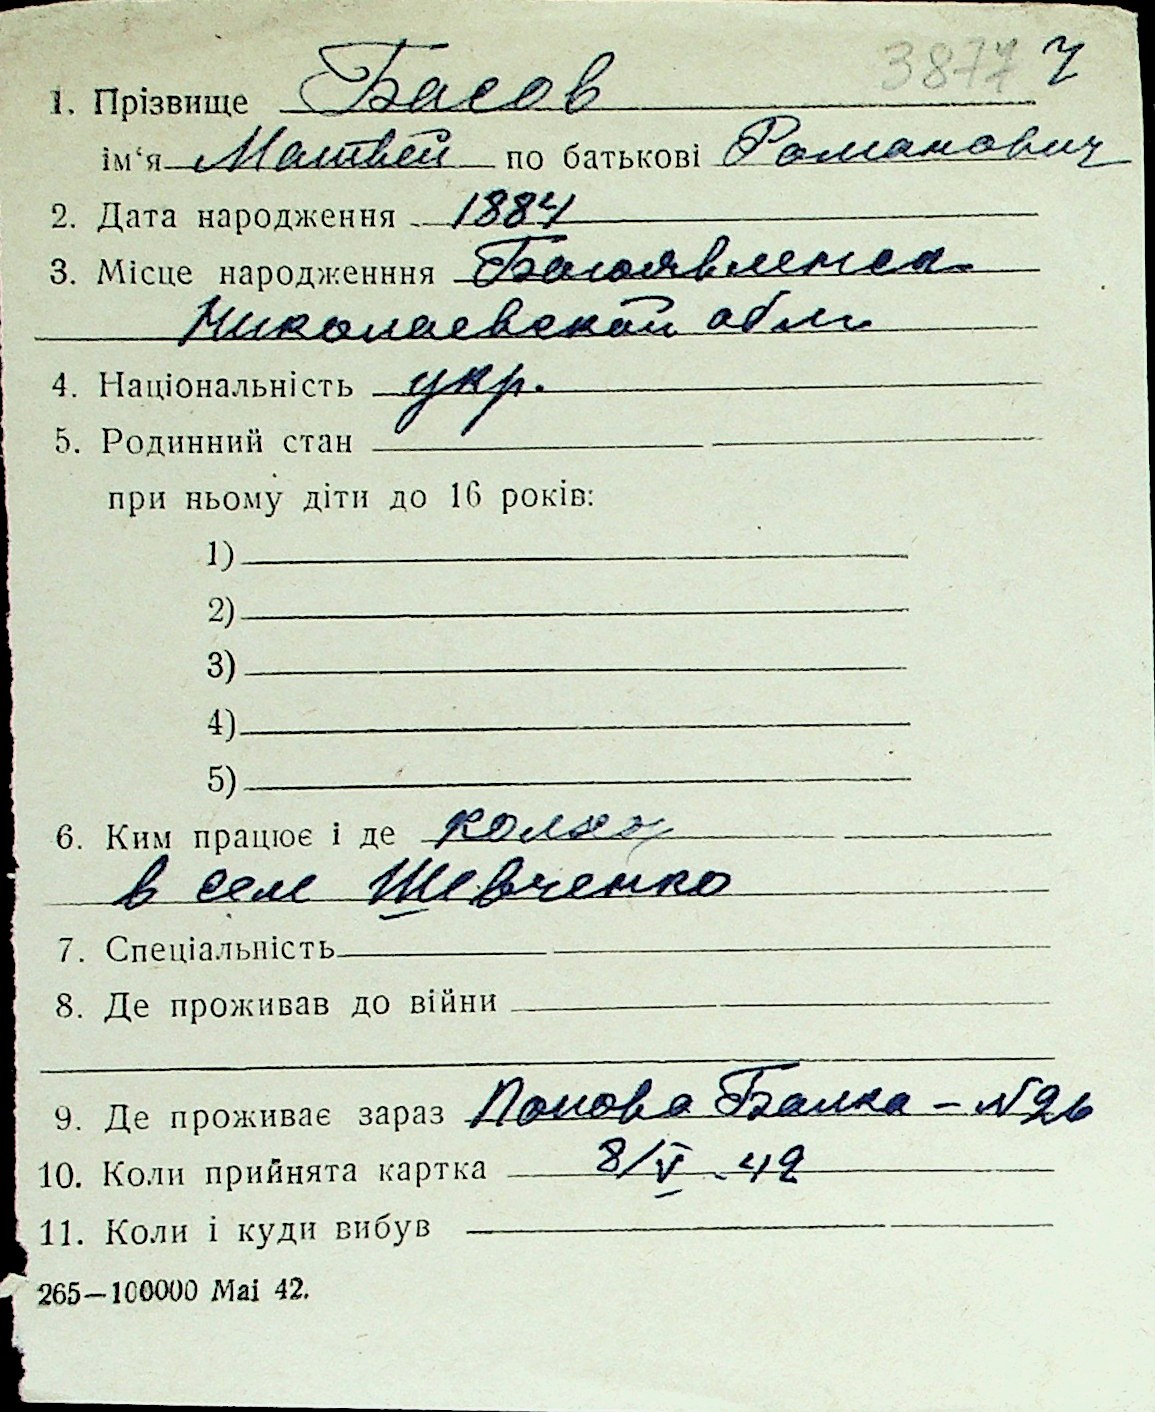 3877 ч
1. Прізвище Басов
ім‘я Матвей по батькові Романович
2. Дата народження 1884
3. Місце народженння Богоявленск
Николаевской обл.
4. Національність укр.
5. Родинний стан
при ньому діти до 16 років:
1)
2)
3)
4)
5)
6. Ким працює і де колхоз
в селе Шевченко
7. Спеціальність
8. Де проживав до війни
9. Де проживає зараз Попова Балка – № 26
10. Коли прийнята картка 8/V - 42
11. Коли і куди вибув
265—100000 Маі 42.